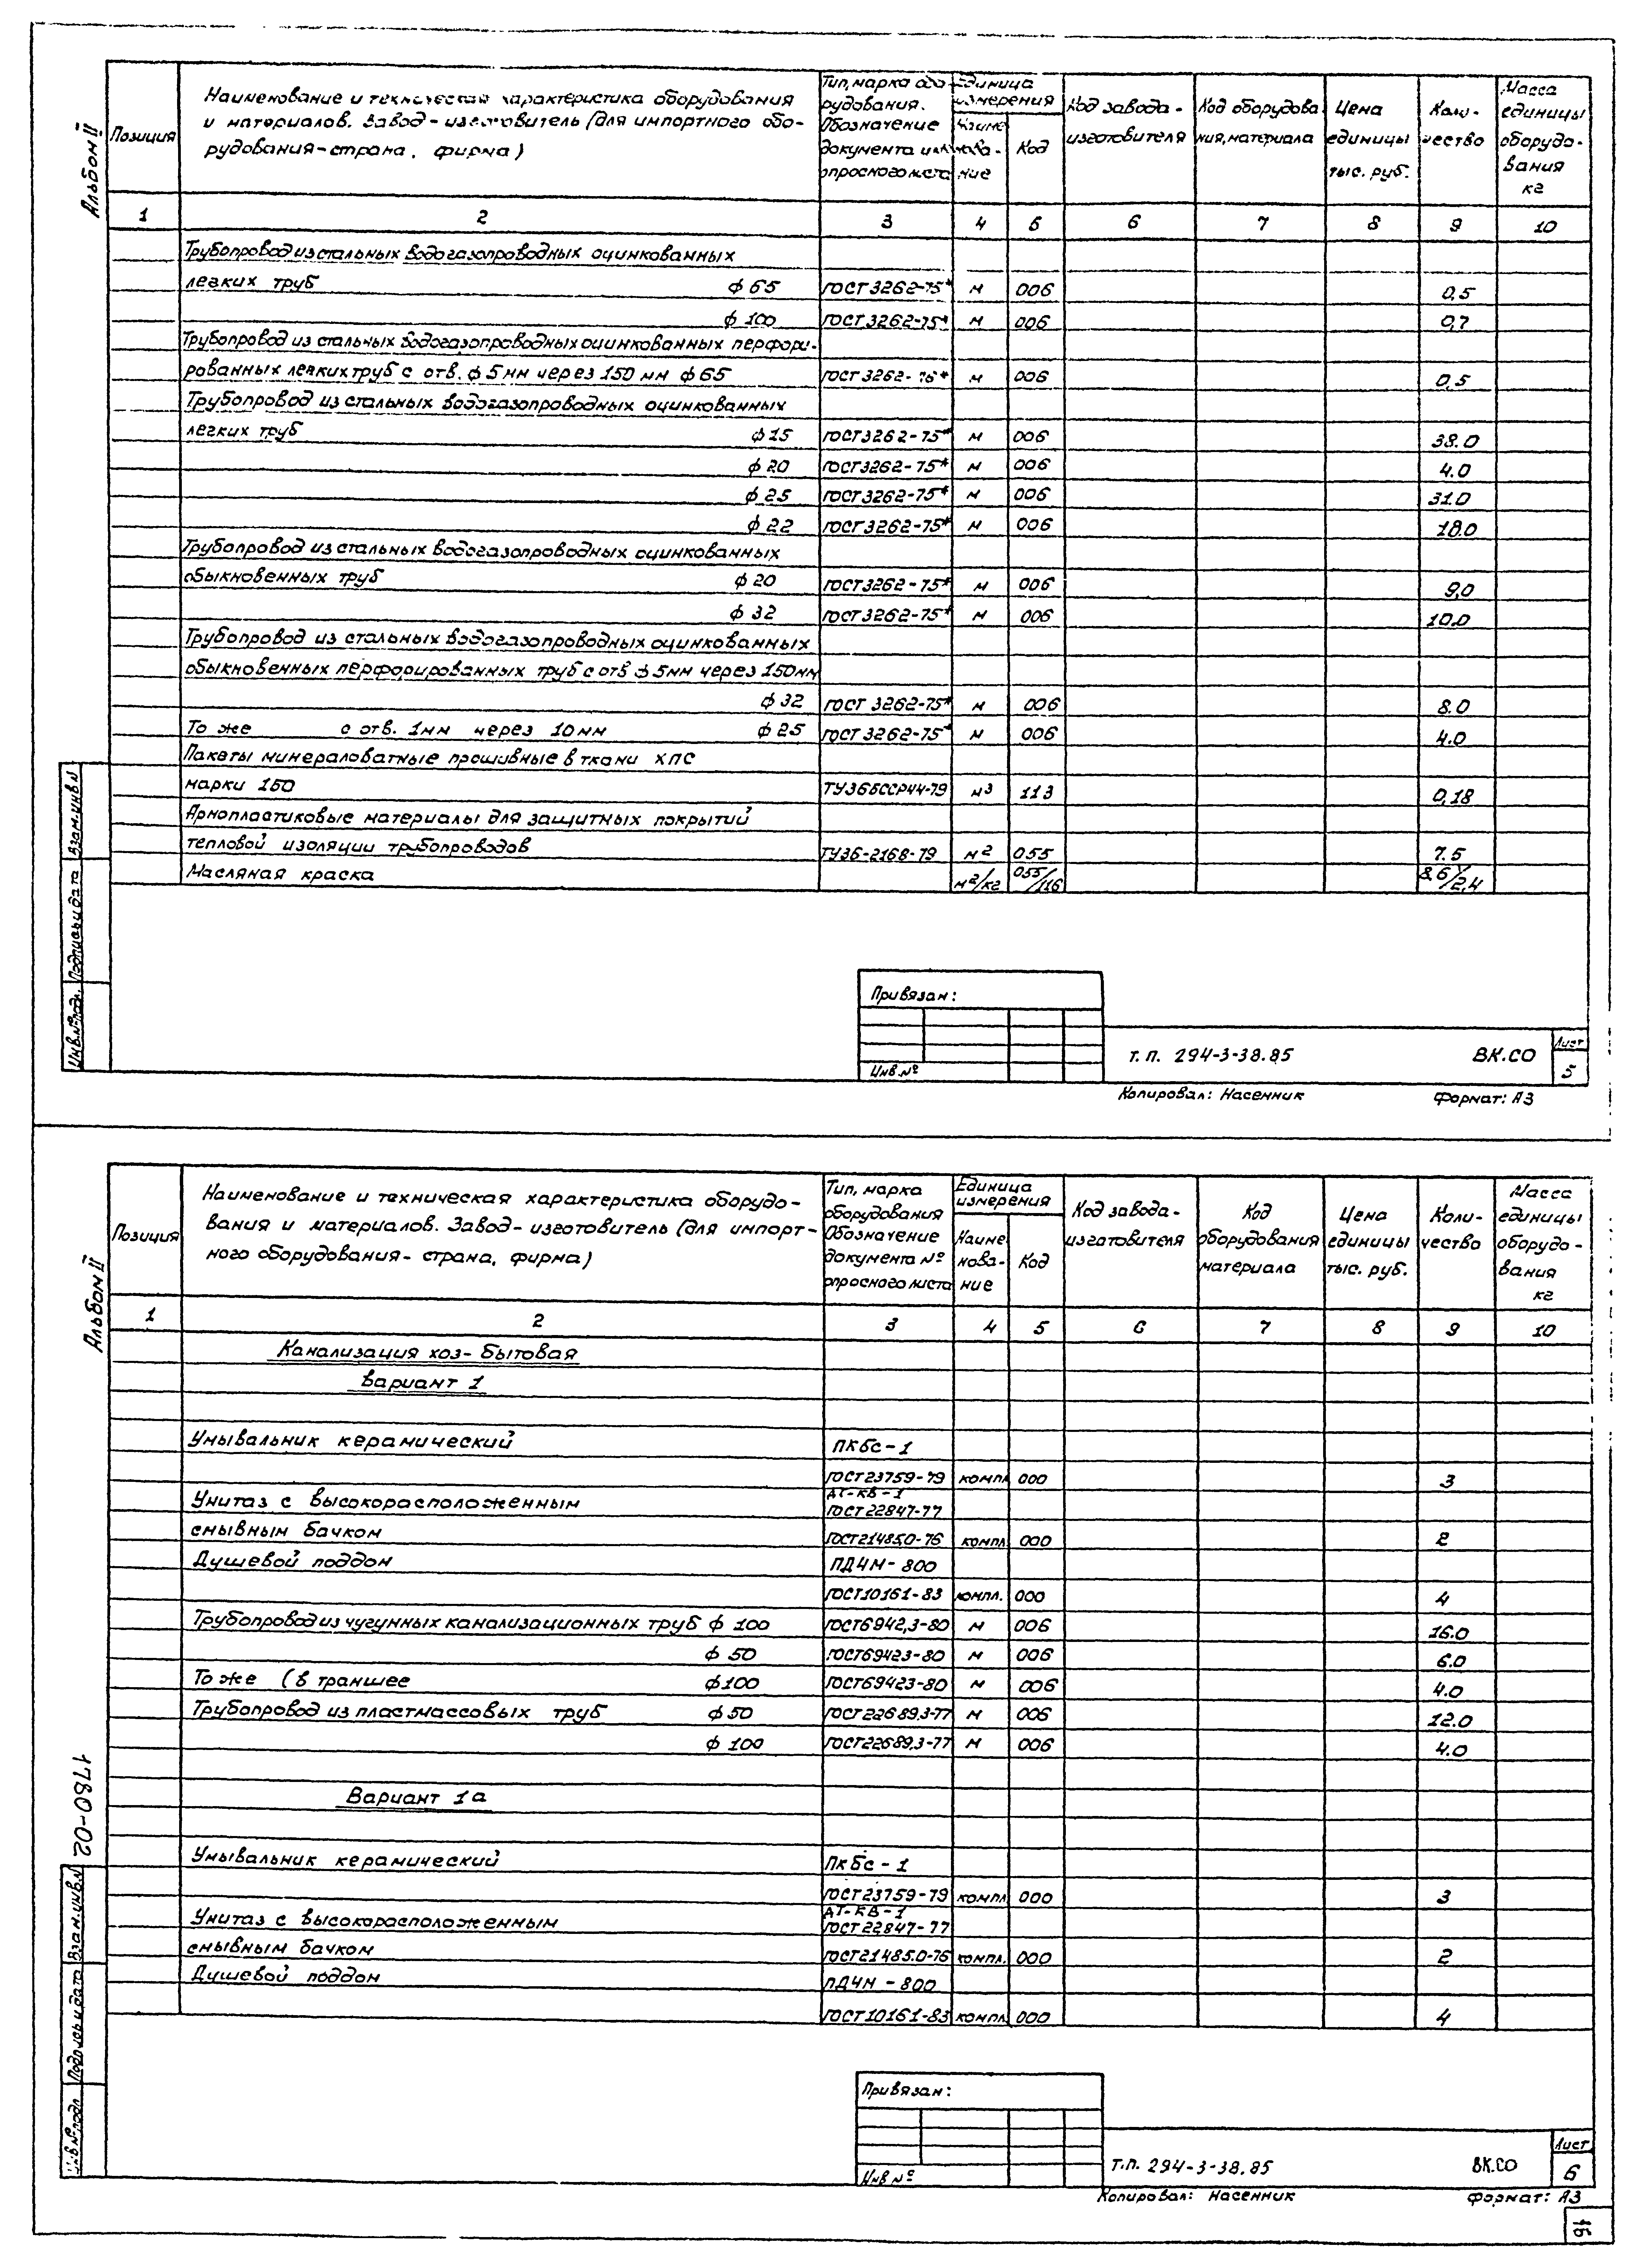 Альбом II
Позиция
Наименование и техническая характеристика оборудования
и материалов. Завод-изготовитель (для импортного обо-
рудования-страна, фирма)
Тип, марка обо
рудования.
Обозначение
документа или
опросного листа
Единица
измерения
Наиме
нова-
ние
Код
Код завода-
изготовителя
Код оборудова
ния, материала
Цена
единицы
тыс. руб.
Коли-
чество
Масса
единицы
оборудо-
вания
кг
1 2 3 4 5 6 7 8 9 10
Трубопровод из стальных водогазопроводных оцинкованных
легких труб ф 65 ГОСТ 3262-75* м 006 0,5
ф 100 ГОСТ 3262-75* м 006 0,7
Трубопровод из стальных водогазопроводных оцинкованных перфори-
рованных легких труб с отв. ф 5 мм через 150 мм ф 65 ГОСТ 3262-75* м 006 0,5
Трубопровод из стальных водогазопроводных оцинкованных
легких труб ф 15 ГОСТ 3262-75* м 006 38.0
ф 20 ГОСТ 3262-75* м 006 4.0
ф 25 ГОСТ 3262-75* м 006 31.0
ф 22 ГОСТ 3262-75* м 006 18.0
Трубопровод из стальных водогазопроводных оцинкованных
обыкновенных труб ф 20 ГОСТ 3262-75* м 006 9,0
ф 32 ГОСТ 3262-75* м 006 10.0
Трубопровод из стальных водогазопроводных оцинкованных
обыкновенных перфорированных труб с отв ф 5мм через 150мм
ф 32 ГОСТ 3262-75* м 006 8.0
То же с отв. 1мм через 10мм ф 25 ГОСТ 3262-75* м 006 4.0
Пакеты минераловатные прошивные в ткани ХПС
марки 150 ТУ36БССР44-79 м3 113 0,18
Армопластиковые материалы для защитных покрытий
тепловой изоляции трубопроводов ТУ36-2168-79 м2 055 7.5
Масляная краска м2/кг 055/116 8.6/2,4
Взам.инв.N
Подпись и дата
Инв.№ подл.
Привязан:
Инв.№
Т. п. 294-3-38.85 ВК.СО
Лист
5
Копировал: Насенник Формат: А3
Альбом II
Позиция
Наименование и техническая характеристика оборудо-
вания и материалов. Завод-изготовитель (для импорт-
ного оборудования-страна, фирма)
Тип, марка
оборудования
Обозначение
документа №
опросного листа
Единица
измерения
Наиме
нова-
ние
Код
Код завода-
изготовителя
Код
оборудования
материала
Цена
единицы
тыс. руб.
Коли-
чество
Масса
единицы
оборудо-
вания
кг
1 2 3 4 5 6 7 8 9 10
Канализация хоз-бытовая
Вариант 1
Умывальник керамический ПКБС-1
ГОСТ23759-79 компл 000 3
Унитаз с высокорасположенным АТ-КВ-1
ГОСТ22847-77
смывным бачком ГОСТ21485.0-76 компл. 000 2
Душевой поддон ПДЧМ-800
ГОСТ10161-83 компл. 000 4
Трубопровод из чугунных канализационных труб ф 100 ГОСТ6942,3-80 м 006 16.0
ф 50 ГОСТ69423-80 м 006 6.0
То же (в траншее ф100 ГОСТ69423-80 м 006 4.0
Трубопровод из пластмассовых труб ф 50 ГОСТ22689,3-77 м 006 12.0
ф 100 ГОСТ22689,3-77 м 006 4.0
Вариант 1а
Умывальник керамический ПКБС-1
ГОСТ23759-79 компл. 000 3
Унитаз с высокорасположенным АТ-КВ-1
ГОСТ22847-77
смывным бачком ГОСТ21485.0-76 компл. 000 2
Душевой поддон ПДЧМ-800
ГОСТ10161-83 компл. 000 4
1780-02
Взам.инв.N
Подпись и дата
Инв.№ подл
Привязан:
Инв №
Т.п. 294-3-38.85 ВК.СО
Лист
6
Копировал: Насенник Формат: А3
16